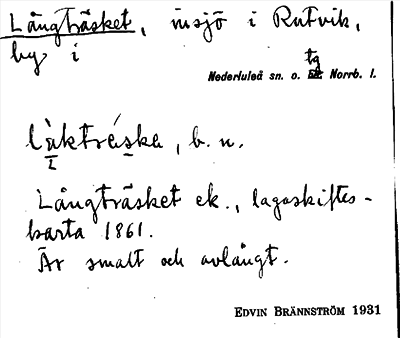 Långträsket, insjö i Rutvik,
by i
tg
Nederluleå sn. o. Norrb. l.
làkträ́ska, b. n.
Långträsket ek., lagaskiftes-
karta 1861.
Är smalt och avlångt.
EDVIN BRÄNNSTRÖM 1931